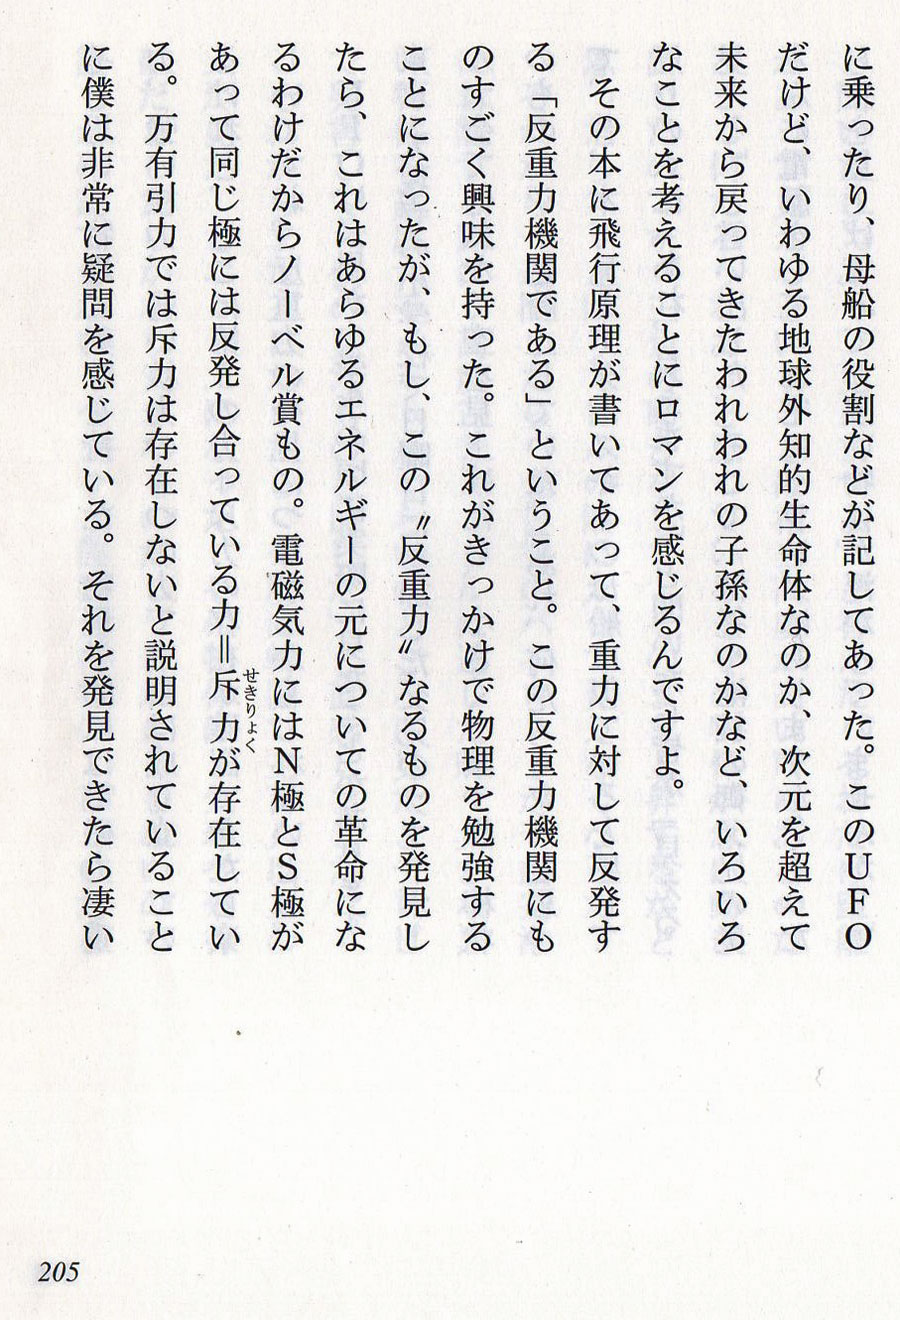 に乗ったり、母船の役割などが記してあった。このUFO
だけど、いわゆる地球外知的生命体なのか、次元を超えて
未来から戻ってきたわれわれの子孫なのかなど、いろいろ
なことを考えることにロマンを感じるんですよ。
その本に飛行原理が書いてあって、重力に対して反発す
る「反重力機関である」ということ。この反重力機関にも
のすごく興味を持った。これがきっかけで物理を勉強する
ことになったが、もし、この〝反重力〟なるものを発見し
たら、これはあらゆるエネルギーの元についての革命にな
るわけだからノーベル賞もの。電磁気力にはN極とS極が
あって同じ極には反発し合っている力=斥力が存在してい
せきりょく
る。万有引力では斥力は存在しないと説明されていること
に僕は非常に疑問を感じている。それを発見できたら凄い
205